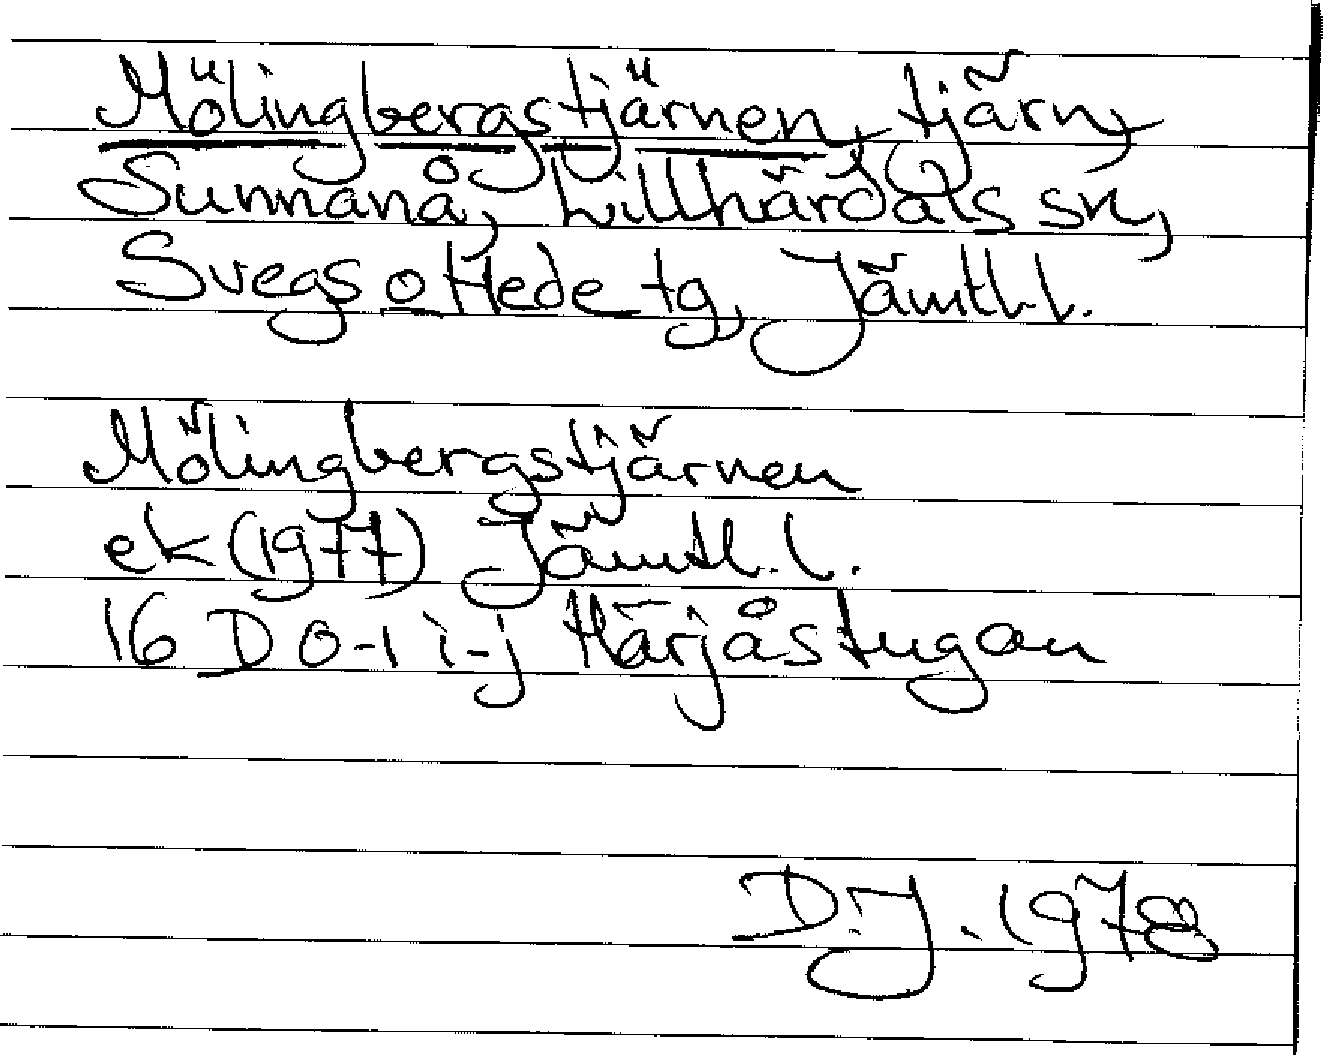 Mölingbergstjärnen, tjärn,
Sunnanå, Lillhärdals sn,
Svegs o Hede tg, Jämtl.l.
Mölingbergstjärnen
ek (1977) Jämtl.l.
16 D 0-1 i-j Härjåstugan
D.J. 1978